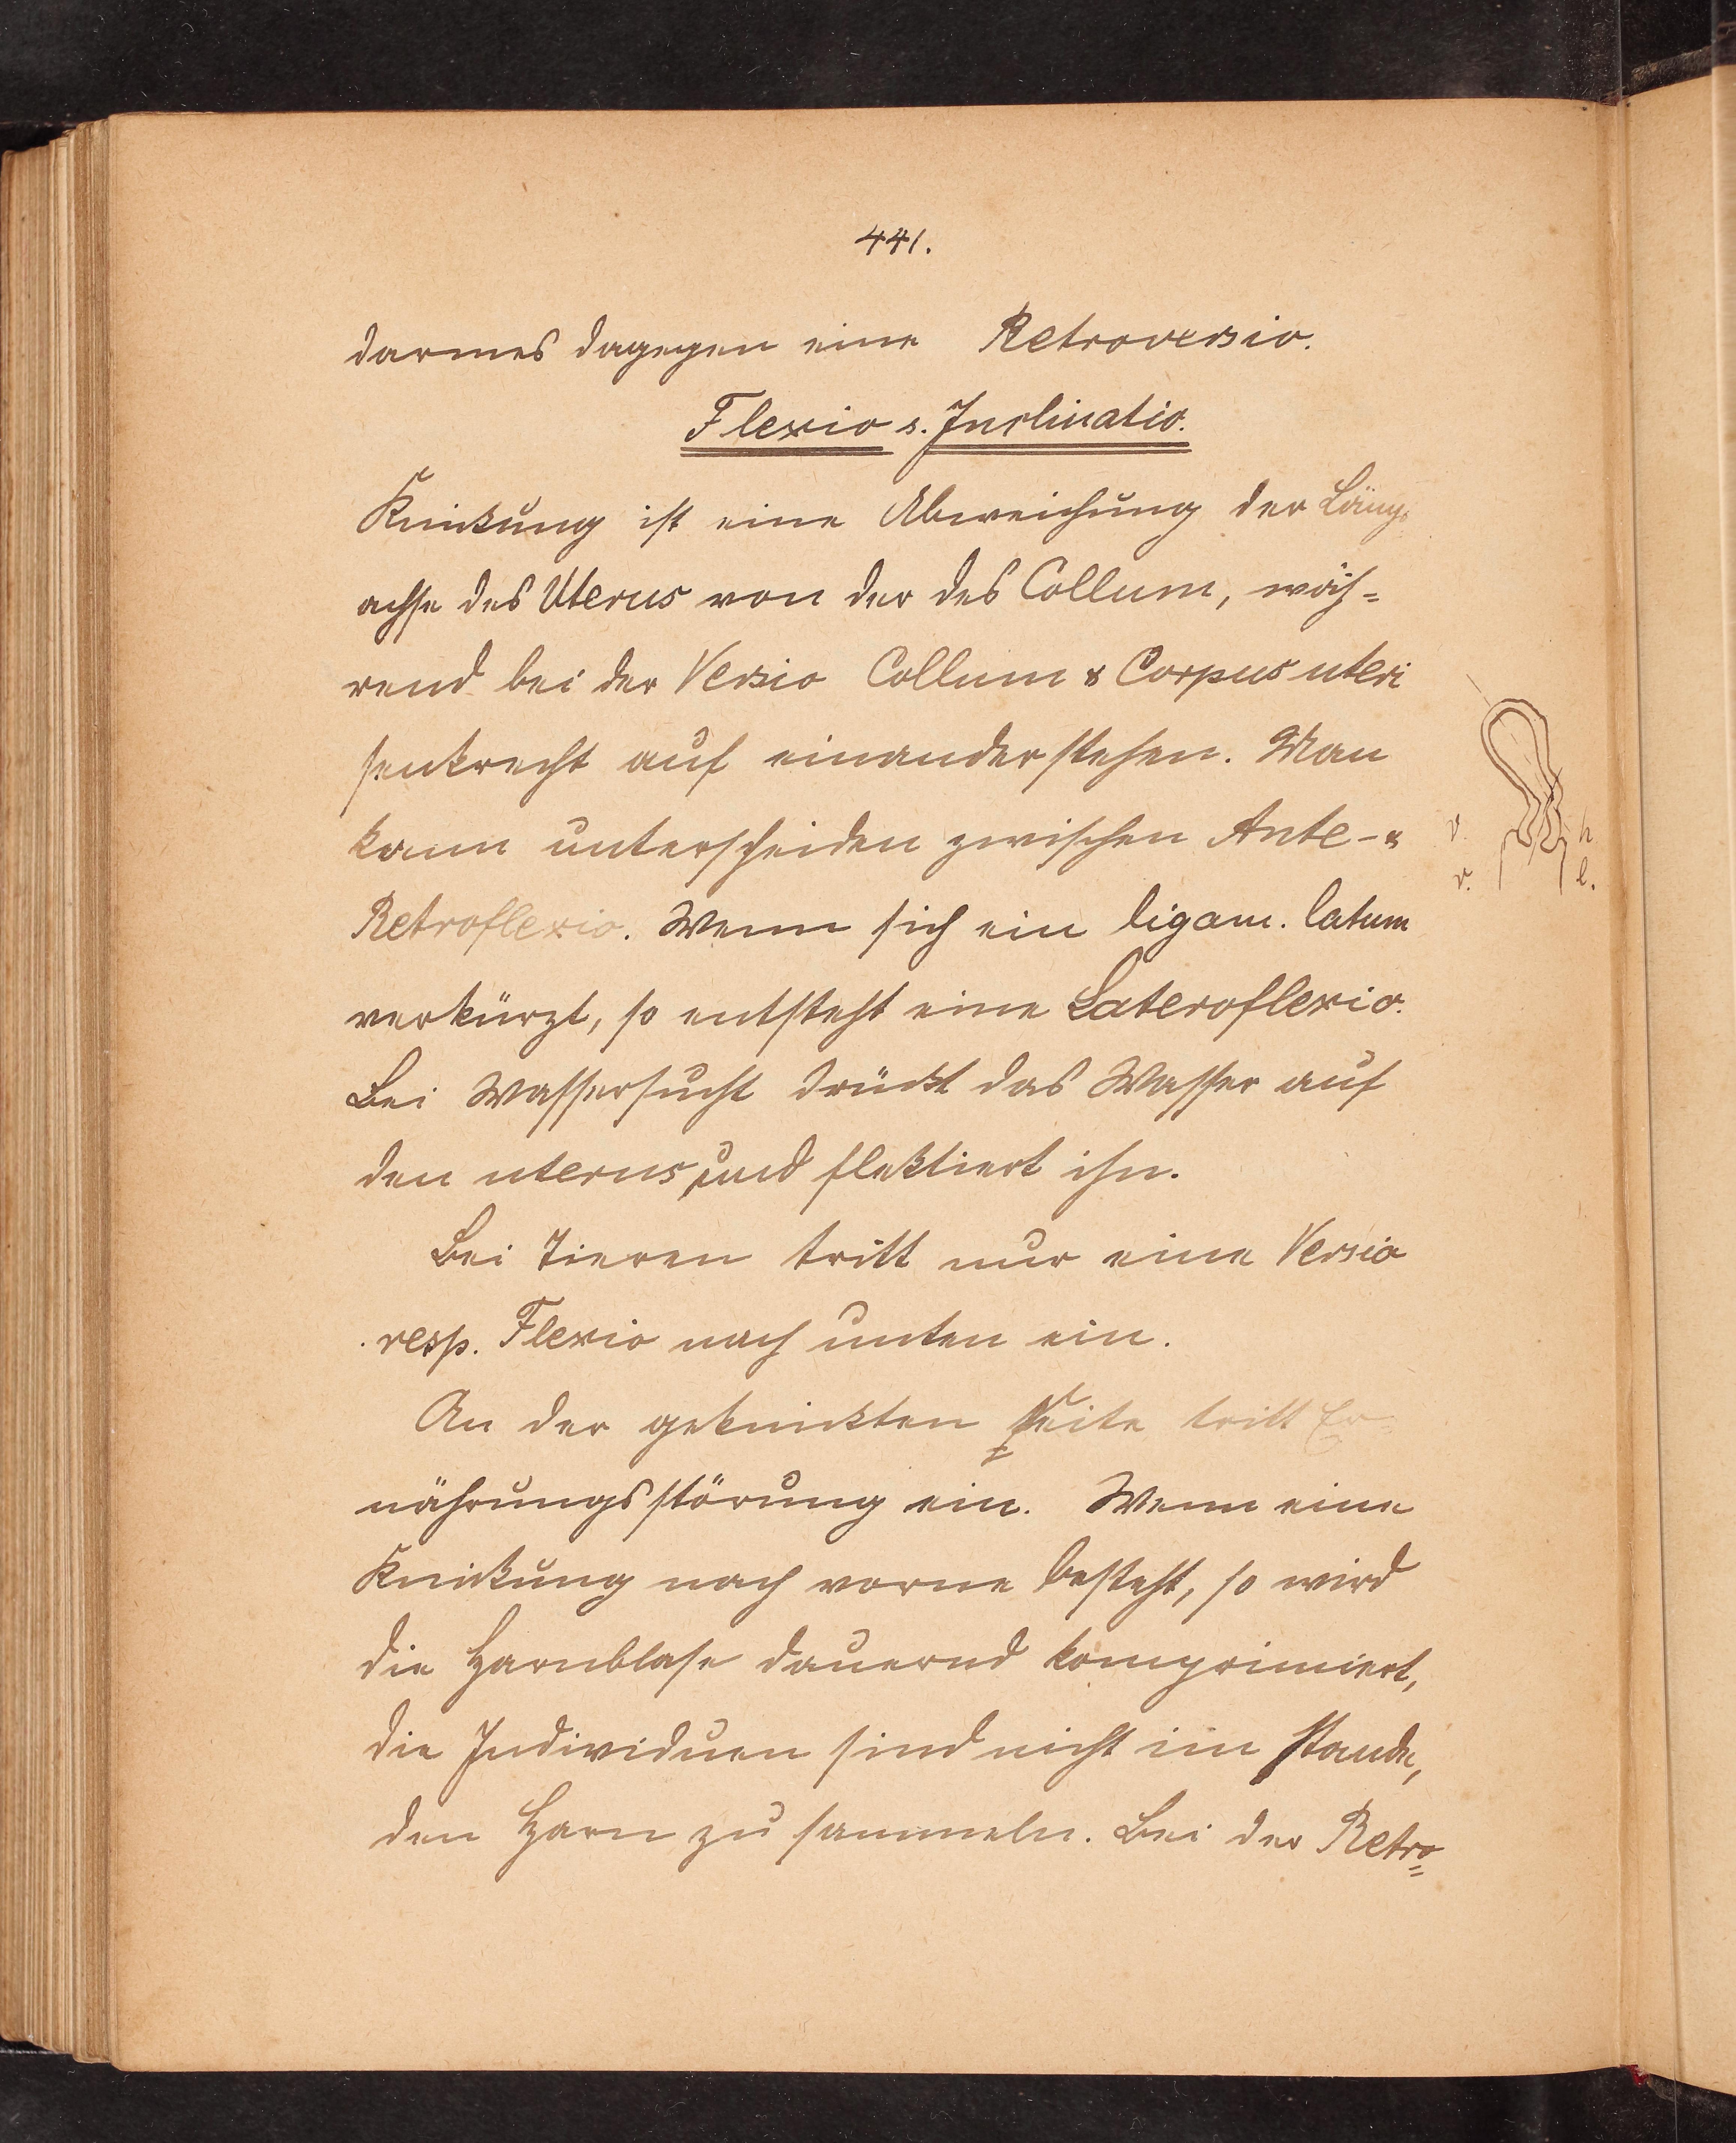 441.
darmes dagegen eine Retroversio.
Flexio s. Inclinatio.
Knickung ist eine Abweichung der Längs
achse des Uterus von der des Collum, wäh=
rend bei der Versio Collum & Corpus uteri
senkrecht auf einander stehen. Man
kann unterscheiden zwischen Ante- &
Retroflexio. Wenn sich ein ligam. latum
verkürzt, so entsteht eine Lateroflexio.
Bei Wassersucht drückt das Wasser auf
den uterus und flektiert ihn.
Bei Tieren tritt nur eine Versio
resp. Flexio nach unten ein.
An der geknickten Seite tritt Er=
nährungsstörung ein. Wenn eine
Knickung nach vorne besteht, so wird
die Harnblase dauernd komprimiert,
die Individuen sind nicht im stande,
den Harn zu sammeln. Bei der Retro=
v. h
r. l.